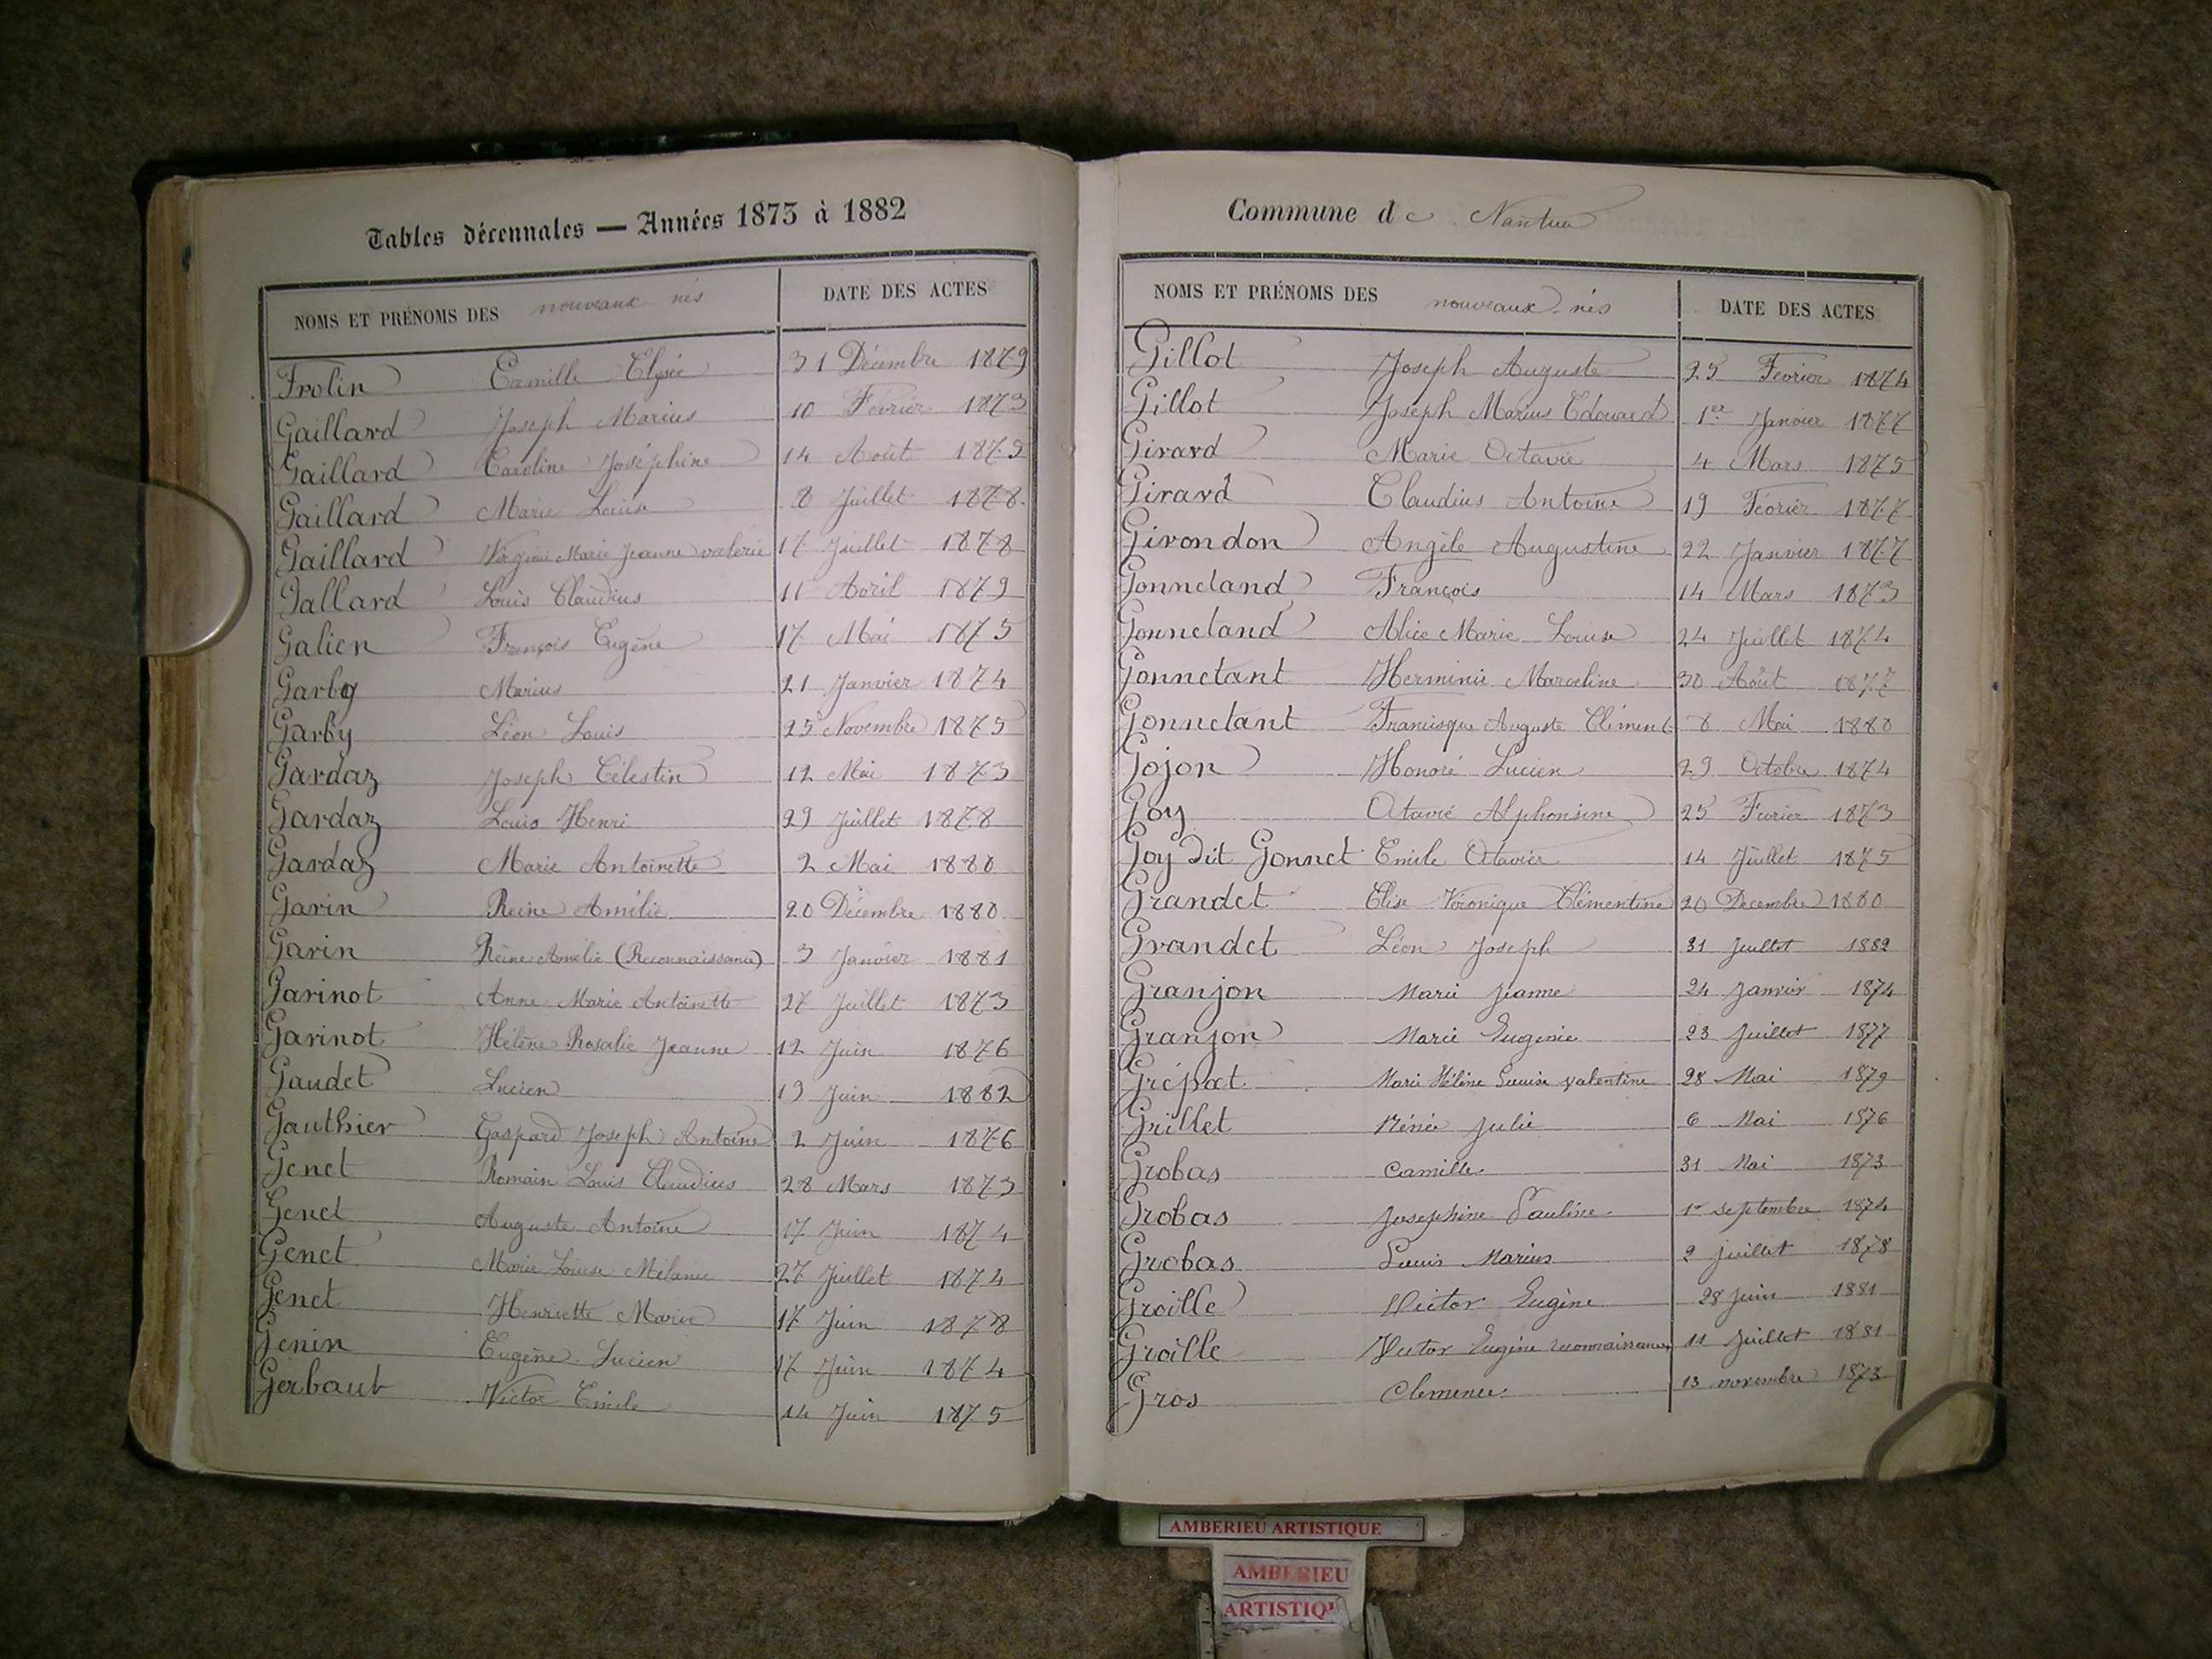 Tables décennales — Années 1873 à 1882
NOMS ET PRÉNOMS DES nouveaux-nés DATE DES ACTES
Frolin Camille Elysée 31 Décembre 1879
Gaillard Joseph Marius 10 Février 1873
Gaillard Caroline Joséphine 14 Août 1873
Gaillard Marie Louise 8 Juillet 1878
Gaillard Virginie Marie Jeanne valerie 17 Juillet 1878
Gallard Louis Claudius 11 Avril 1879
Galien François Eugène 17 Mai 1875
Garby Marius 21 Janvier 1874
Garby Léon Louis 25 Novembre 1875
Gardaz Joseph Célestin 12 Mai 1873
Gardaz Louis Henri 29 Juillet 1878
Gardaz Marie Antoinette 2 Mai 1880
Garin Reine Amélie 20 Décembre 1880
Garin Reine Amélie (Reconnaissance) 3 Janvier 1881
Garinot Anne Marie Antoinette 27 Juillet 1873
Garinot Hélène Rosalie Jeanne 12 Juin 1876
Gaudet Lucien 13 Juin 1882
Gauthier Gaspard Joseph Antoine 2 Juin 1876
Genet Romain Louis Claudius 28 Mars 1873
Genet Auguste Antoine 17 Juin 1874
Genet Marie Louise Mélanie 27 Juillet 1874
Genet Henriette Marie 17 Juin 1878
Genin Eugène Lucien 17 Juin 1874
Gerbaut Victor Emile 14 Juin 1875
Commune de Nantua
NOMS ET PRÉNOMS DES nouveaux-nés DATE DES ACTES
Gillot Joseph Auguste 25 Fevrier 1874
Gillot Joseph Marius Edouard 1er Janvier 1877
Girard Marie Octavie 4 Mars 1875
Girard Claudius Antoine 19 Février 1877
Girondon Angèle Augustine 22 Janvier 1877
Gonneland François 14 Mars 1873
Gonneland Alice Marie Louise 24 Juillet 1874
Gonnetant Herminie Marceline 30 Août 1877
Gonnetant Francisque Auguste Clément 8 Mai 1880
Gojon Honoré Lucien 29 Octobre 1874
Goy Octavie Alphonsine 25 Fevrier 1873
Goy dit Gonnet Emile Octavien 14 Juillet 1875
Grandet Elise Véronique Clémentine 20 Décembre 1880
Grandet Léon Joseph 31 Juillet 1882
Granjon Marie Jeanne 24 Janvier 1874
Granjon Marie Eugenie 23 Juillet 1877
Grépat Marie Hélène Louise valentine 28 Mai 1879
Grillet Rénée Julie 6 Mai 1876
Grobas Camille 31 Mai 1873
Grobas Josephine Pauline 1er septembre 1874
Grobas Louis Marius 2 juillet 1878
Groille Victor Eugène 28 Juin 1881
Groille Victor Eugène reconnaissance 11 Juillet 1881
Gros Clemence 13 novembre 1873
AMBERIEU ARTISTIQUE
AMBERIEU
ARTISTIQU